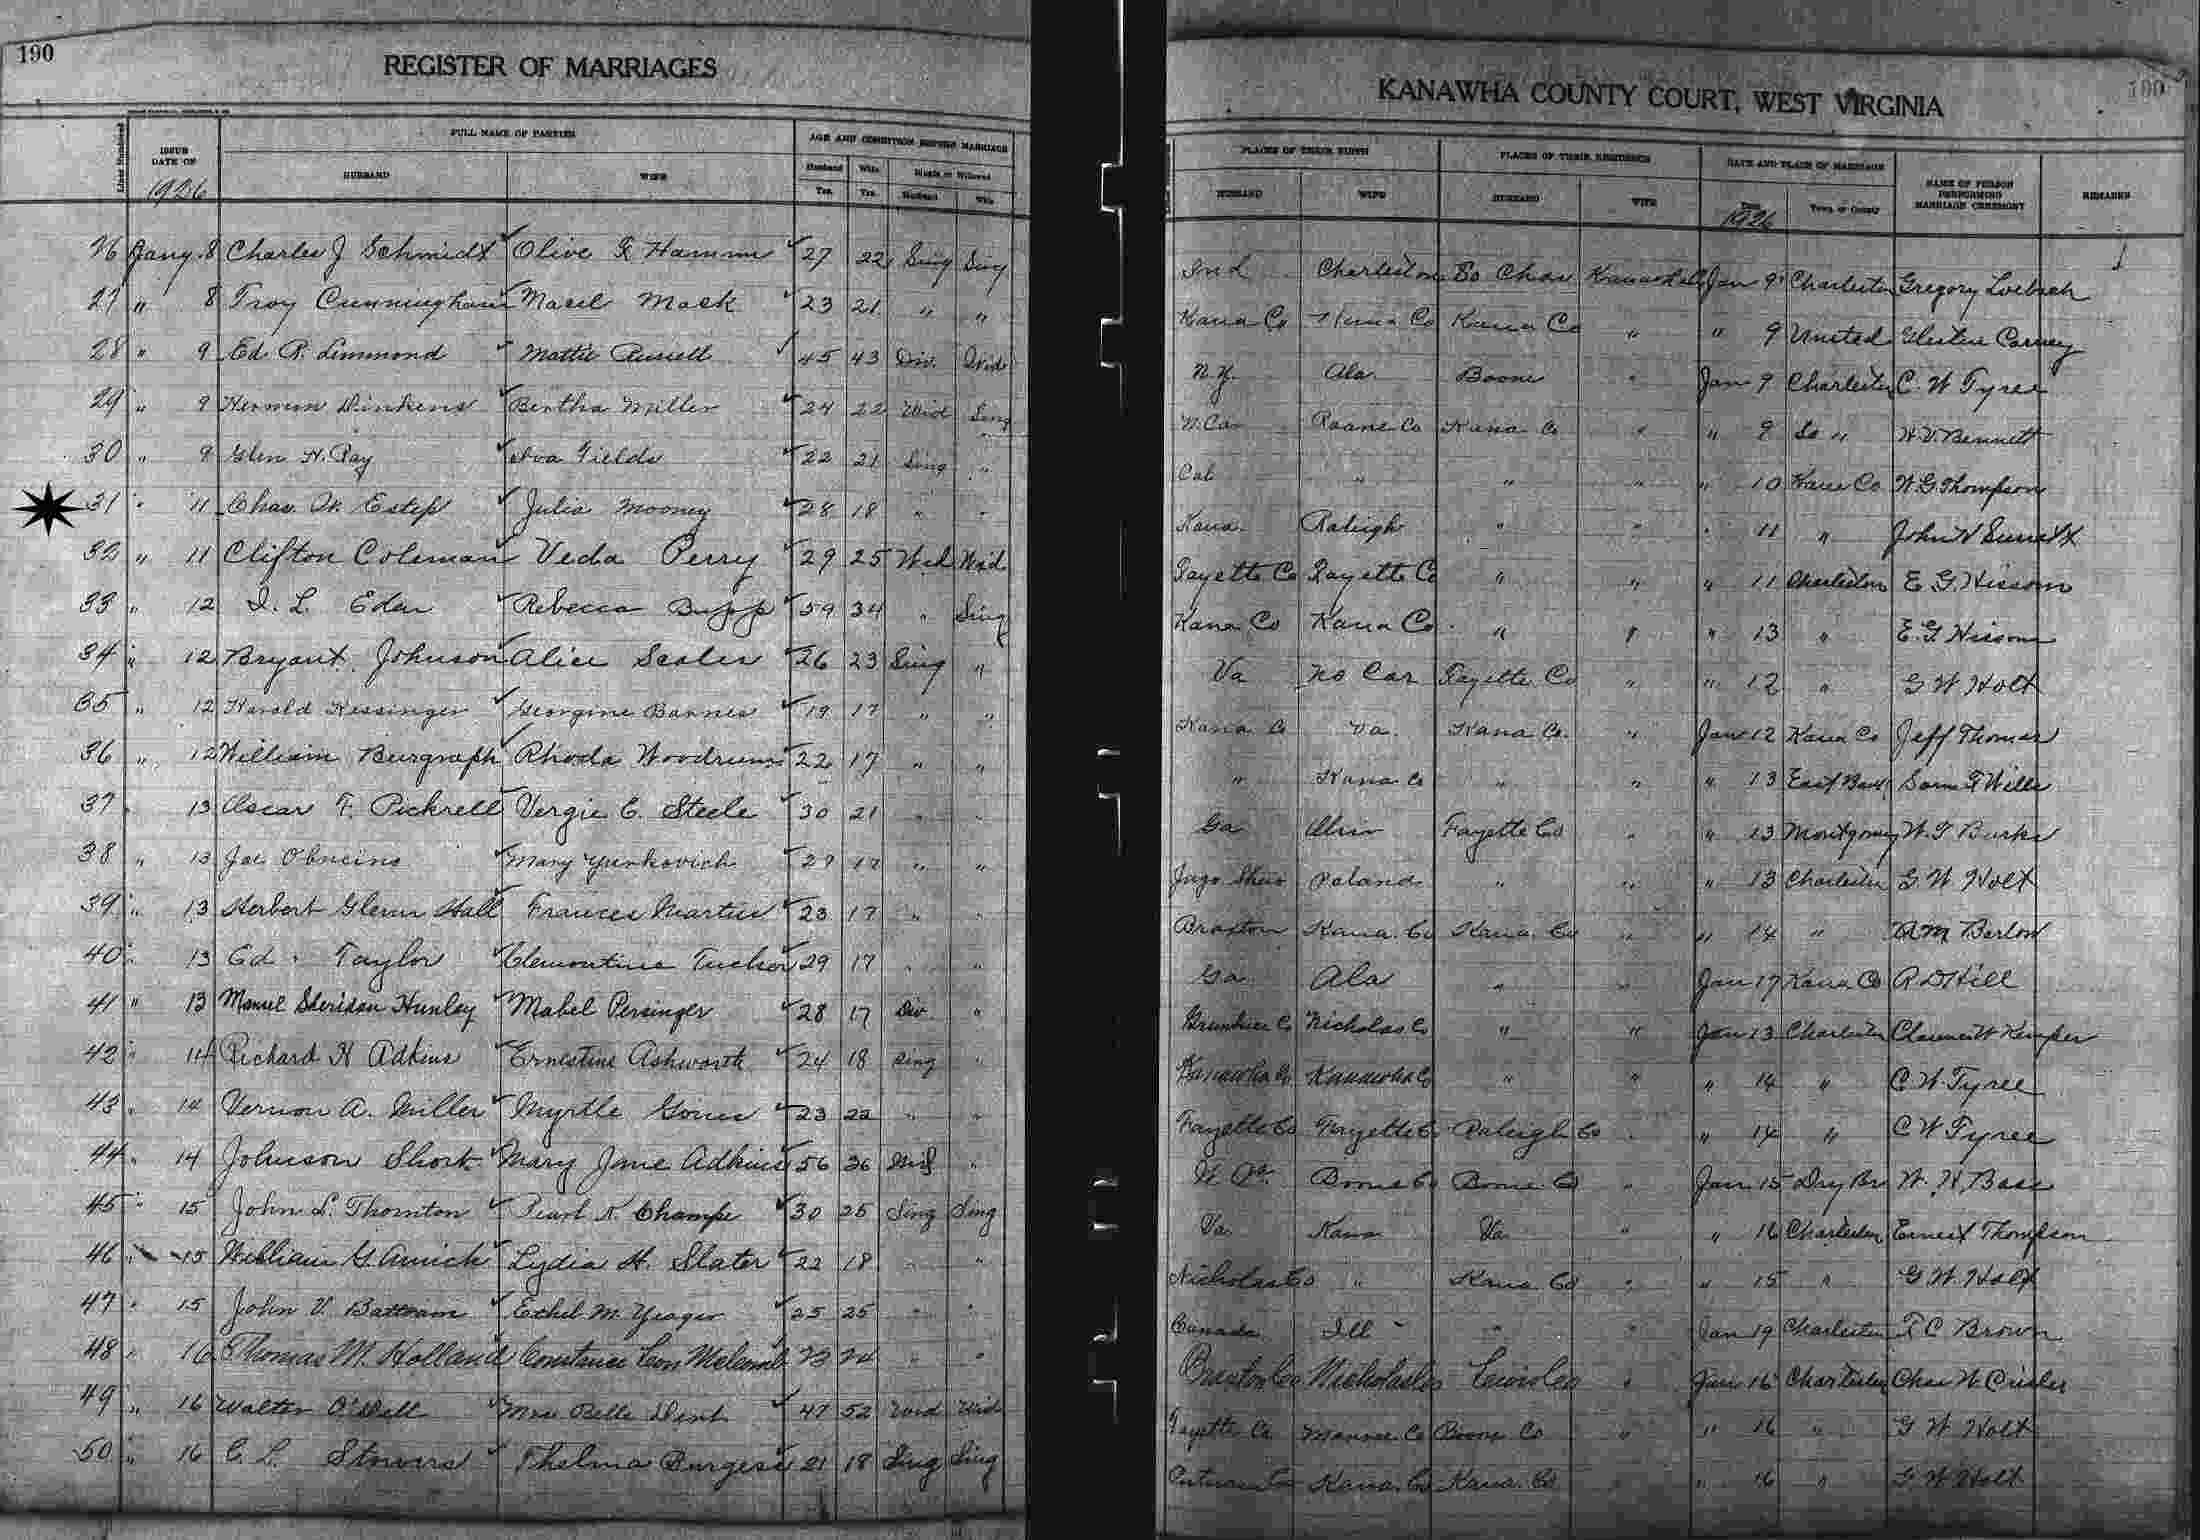 190
REGISTER OF MARRIAGES
Line Number
ISSUE DATE OF
1926
FULL NAME OF PARTIES
HUSBAND WIFE
AGE AND CONDITION BEFORE MARRIAGE
Husband Wife Single or Widowed
Yrs. Yrs. Husband Wife
26 Jany. 8 Charles J Schmidt Olive F Hamm 27 22 Sing Sing
27 " 8 Troy Cunningham Macel Mack 23 21 " "
28 " 9 Ed. R. Limmond Mattie Russell 45 43 Div. Wid
29 " 9 Herman Dinkens Bertha Miller 24 22 Wid Sing
30 " 9 Glen H. Ray Iva Fields 22 21 Sing "
31 " 11 Chas. W. Estep Julia Mooney 28 18 " "
32 " 11 Clifton Coleman Veda Perry 29 25 Wid Wid
33 " 12 I. L. Eden Rebecca Bupp 59 34 " Sing
34 " 12 Bryant Johnson Alice Scales 26 23 Sing "
35 " 12 Harold Kessinger Georgine Barnes 19 17 " "
36 " 12 William Burgraph Rhoda Woodrum 22 17 " "
37 " 13 Oscar F. Pickrell Vergie C. Steele 30 21 " "
38 " 13 Joe Mary Yurkovich 29 17 " "
39 " 13 Herbert Glenn Hall Frances Martin 23 17 " "
40 " 13 Ed. Taylor Clemontine Tucker 29 17 " "
41 " 13 Manuel Sheridan Hunley Mabel Persinger 28 17 Div "
42 " 14 Richard H Adkins Ernestine Ashworth 24 18 Sing "
43 " 14 Vernon A. Miller Myrtle 23 22 " "
44 " 14 Johnson Short Mary Jane Adkins 56 26 Wid "
45 " 15 John L. Thornton Pearl N. Champe 30 25 Sing Sing
46 " 15 William G. Amick Lydia H. Slater 22 18 " "
47 " 15 John V. Battram Ethel M. Yeager 25 25 " "
48 " 16 Thomas M. Holland Constance 23 24 " "
49 " 16 Walter O'Dell Mrs Belle Dent 47 52 Wid Wid
50 " 16 C. L. Stowers Thelma Burgess 21 18 Sing Sing
190
KANAWHA COUNTY COURT, WEST VIRGINIA
PLACES OF THEIR BIRTH PLACES OF THEIR RESIDENCE DATE AND PLACE OF MARRIAGE NAME OF PERSON PERFORMING MARRIAGE CEREMONY REMARKS
HUSBAND WIFE HUSBAND WIFE Date Town or County
1926
Ind Charleston So Chas Kanawha Co Jan 9 Charleston Gregory Loebach
Kana Co Kana Co Kana Co " " 9 United Carney
N.Y. Ala Boone " Jan 9 Charleston C. W Tyree
N. Car Roane Co Kana Co " " 9 So " H.V. Bennett
Cab " " " " 10 Kana Co W.G. Thompson
Kana. Raleigh " " " 11 " John N
Fayette Co Fayette Co " " " 11 Charleston E. G. Hissom
Kana. Co Kana Co. " " " 13 " E. G Hissom
Va No Car Fayette Co " " 12 " G W Holt
Kana Co Va. Kana Co. " Jan 12 Kana Co Jeff Thomas
" Kana Co " " " 13 East Bank Sam F Wills
Ga Fayette Co " " 13 Montgomery W. T Burks
Jugo Slavo Poland " " " 13 Charleston G. W Holt
Braxton Kana. Co Kana. Co " " 14 " A M Barlow
Ga Ala " " Jan 17 Kana Co R D Hill
Nicholas Co " " Jan 13 Charleston Clarence W Kemper
Kanawha Co Kanawha Co " " " 14 " C. W. Tyree
Fayette Co Fayette Co Raleigh Co " " 14 " C W Tyree
W. Va. Boone Co Boone Co " Jan 15 Dry Br W. H. Bass
Va. Kana Va " " 16 Charleston Ernest Thompson
Nicholas Co " Kana Co " " 15 " G W. Holt
Canada Ill " " Jan 19 Charleston F. C Brown
Braxton Co Nicholas Co Lewis Co " Jan 16 Charleston Chas W
Fayette Co Monroe Co Boone Co " " 16 " G W Holt
Putnam Co Kana. Co Kana. Co " 16 " G W Holt